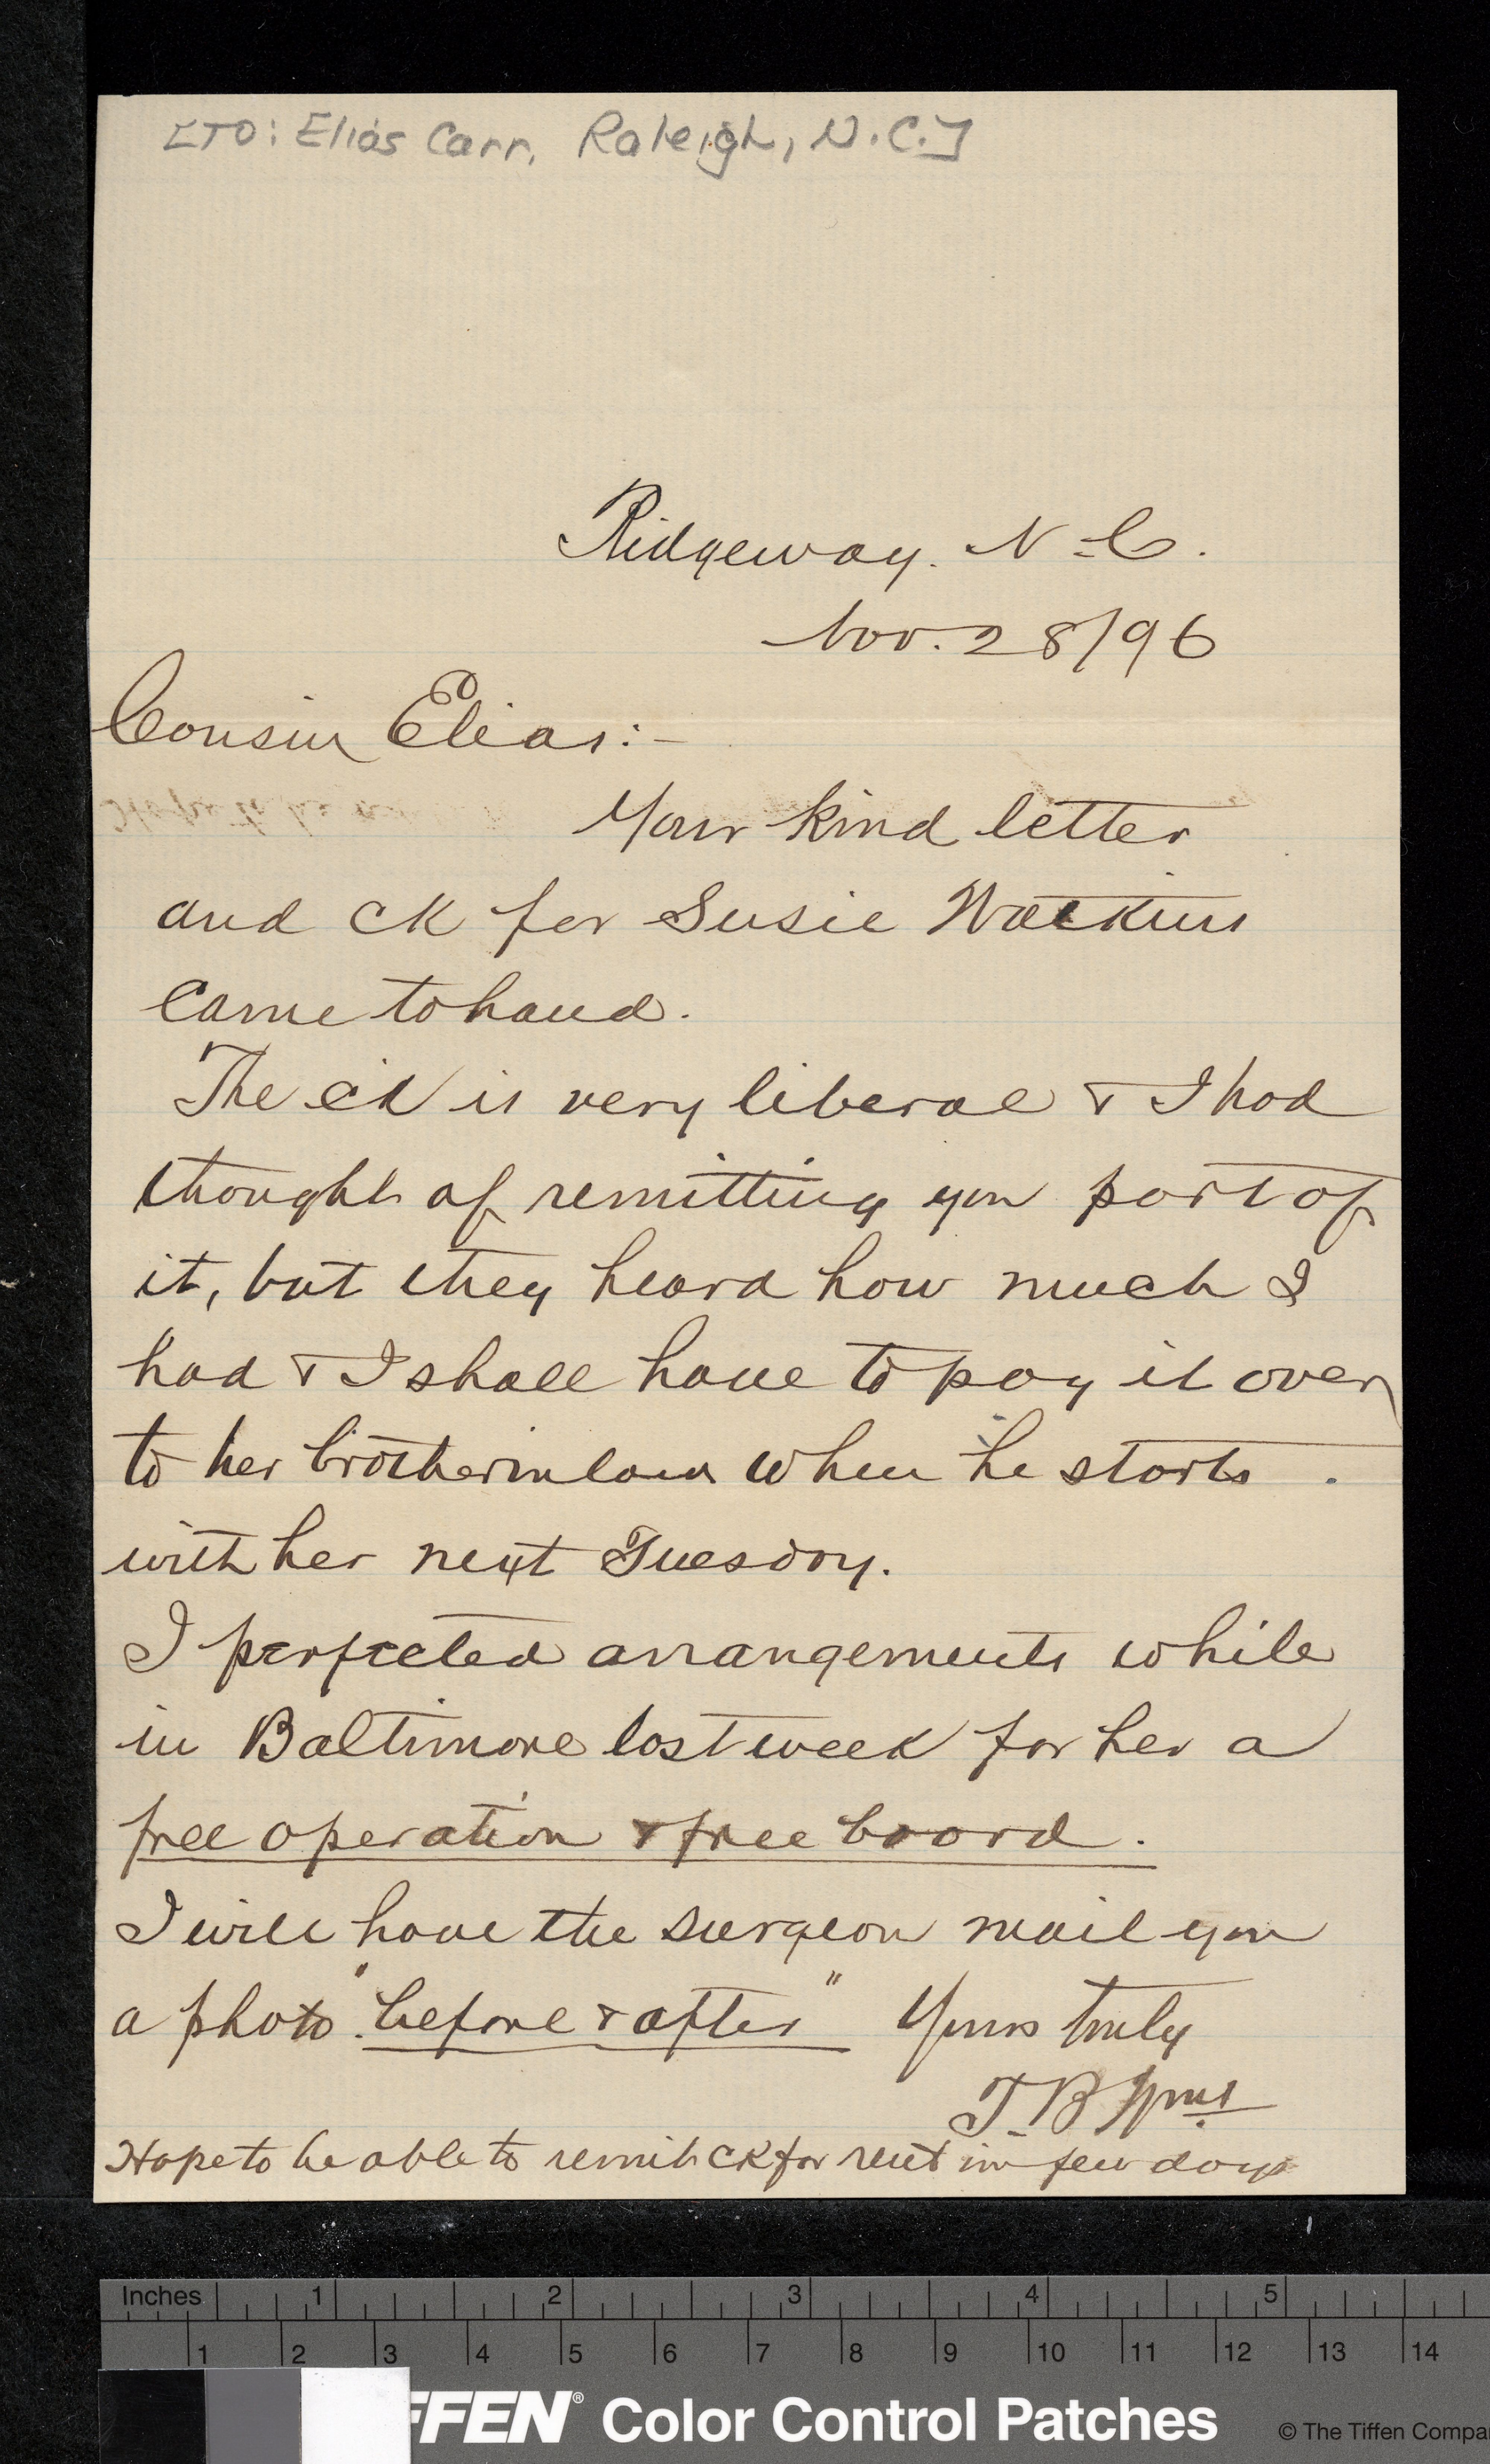 [TO: Elias Carr, Raleigh, N.C.]
Ridgeway. N-C.
Nov. 28/96
Cousin Elias:-
Your kind letter
and ck for Susie Watkins
came to hand.
The ck is very liberal & I had
thought of remitting you part of
it, but they heard how much I
had & I shall have to pay it over
to her brotherinlaw when he starts
with her next Tuesday.
I perfected arrangements while
in Baltimore last week for her a
free operation & free board.
I will have the surgeon mail you
a photo "before & after" Yours truly
T. B. Wms
Hope to be able to remit ck for rent in few days
Inches 1 2 3 4 5
1 2 3 4 5 6 7 8 9 10 11 12 13 14
FFEN® Color Control Patches © The Tiffen Compa